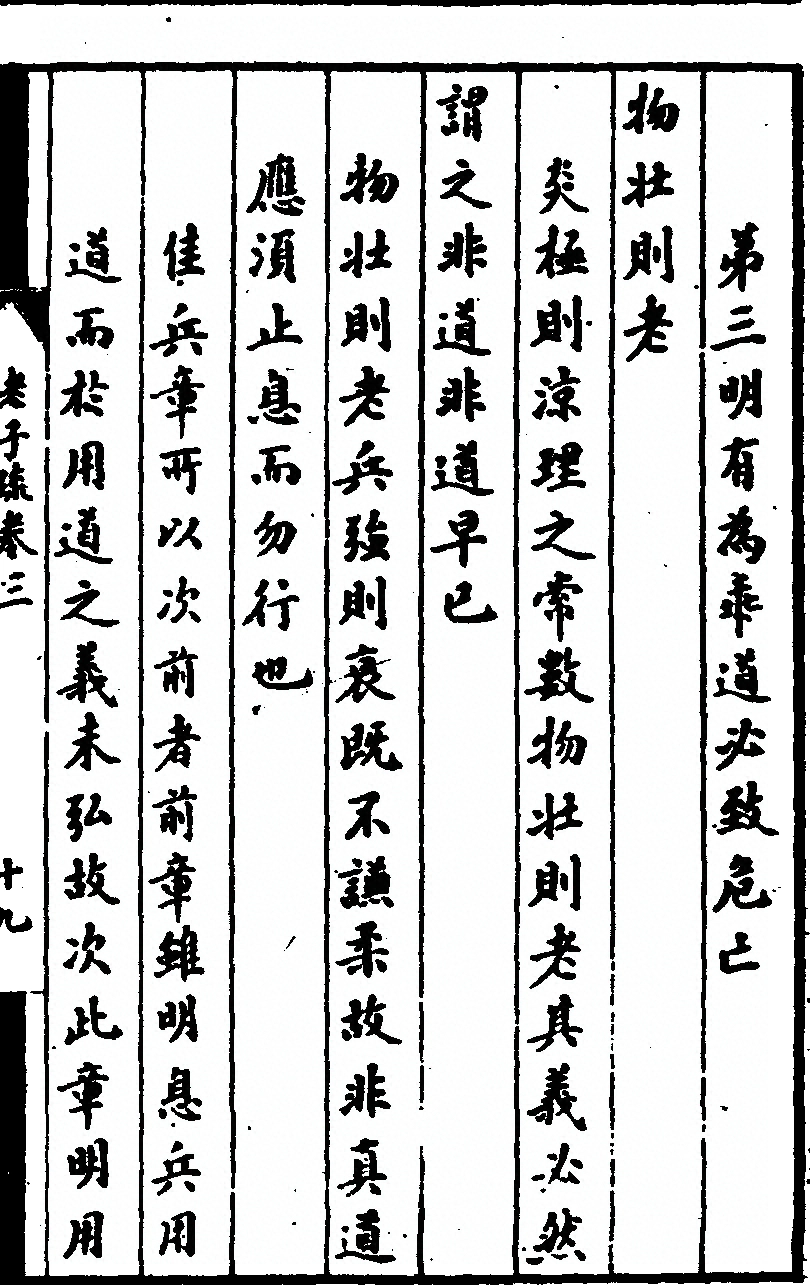 第三明有為乖道必致危亡
物壯則老
炎極則涼理之常數物壯則老其義必然
謂之非道非道早已
物壯則老兵強則衰既不謙柔故非真道
應須止息而勿行也
佳兵章所以次前者前章雖明息兵用
道而於用道之義未弘故次此章明用
老子疏卷三
十九